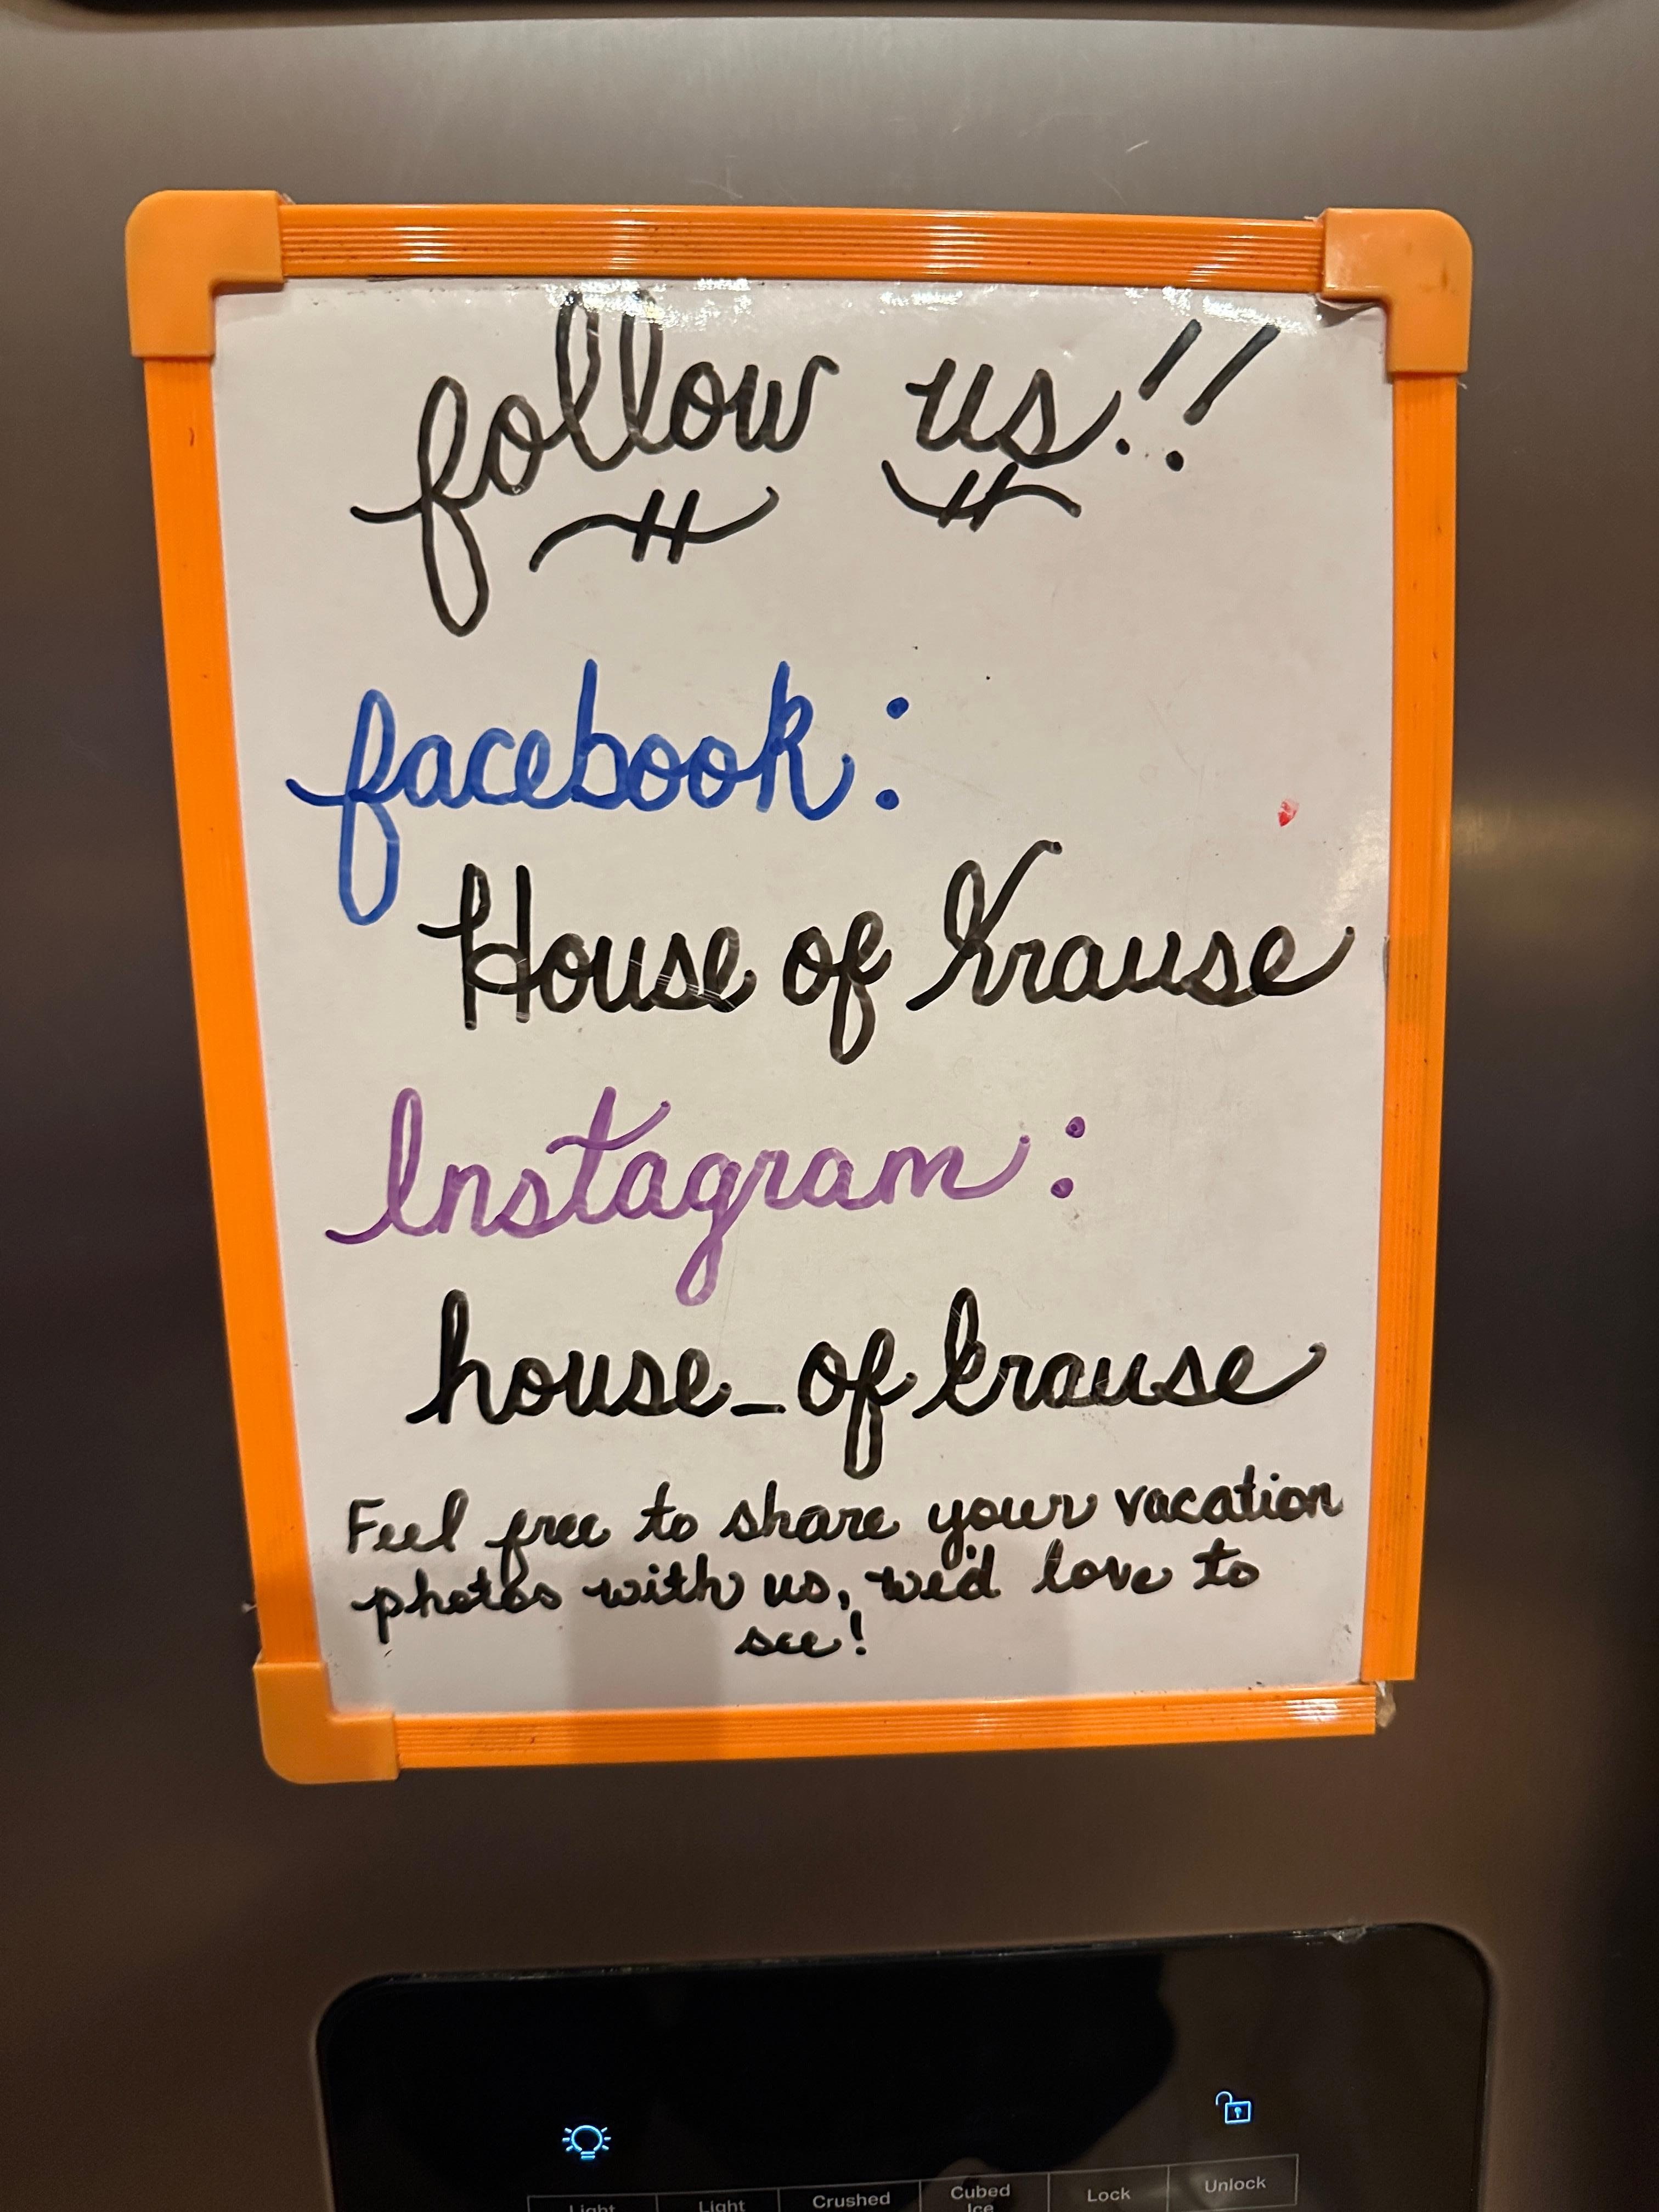 follow us!!
facebook:
House of Krause
Instagram:
house_of krause
Feel free to share your vacation
photos with us, we'd love to
see!
Light Light Crushed Cubed Ice Lock Unlock